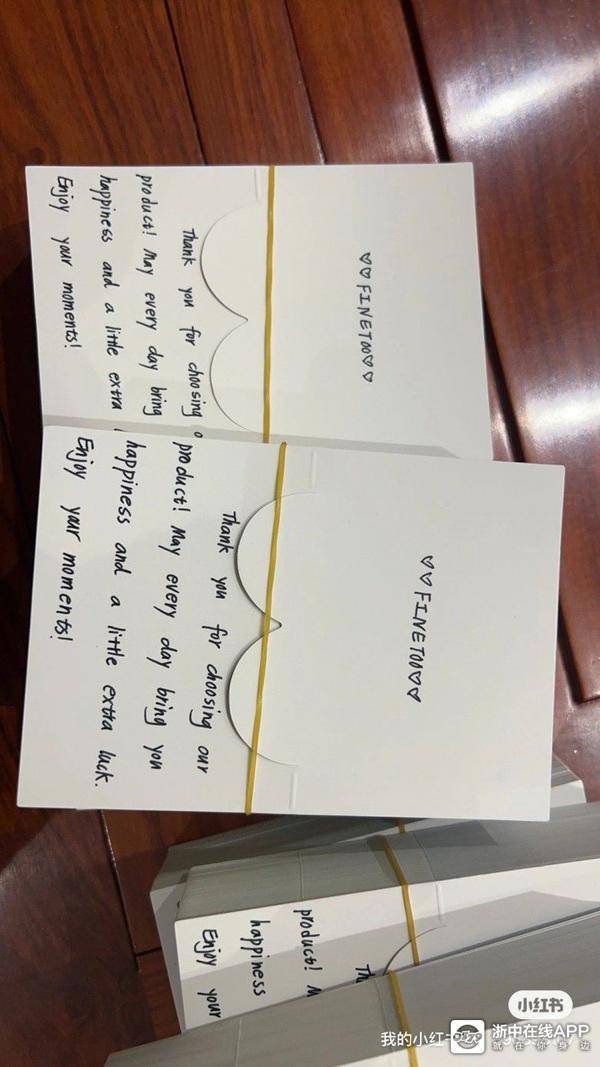 ♡♡FINETOO♡♡
Thank you for choosing o
product! May every day bring
happiness and a little extra
Enjoy your moments!
♡♡FINETOO♡♡
Thank you for choosing our
product! May every day bring you
happiness and a little extra luck.
Enjoy your moments!
Th
product! M
happiness
Enjoy your
小红书
我的小红书
浙中在线APP
就在你身边